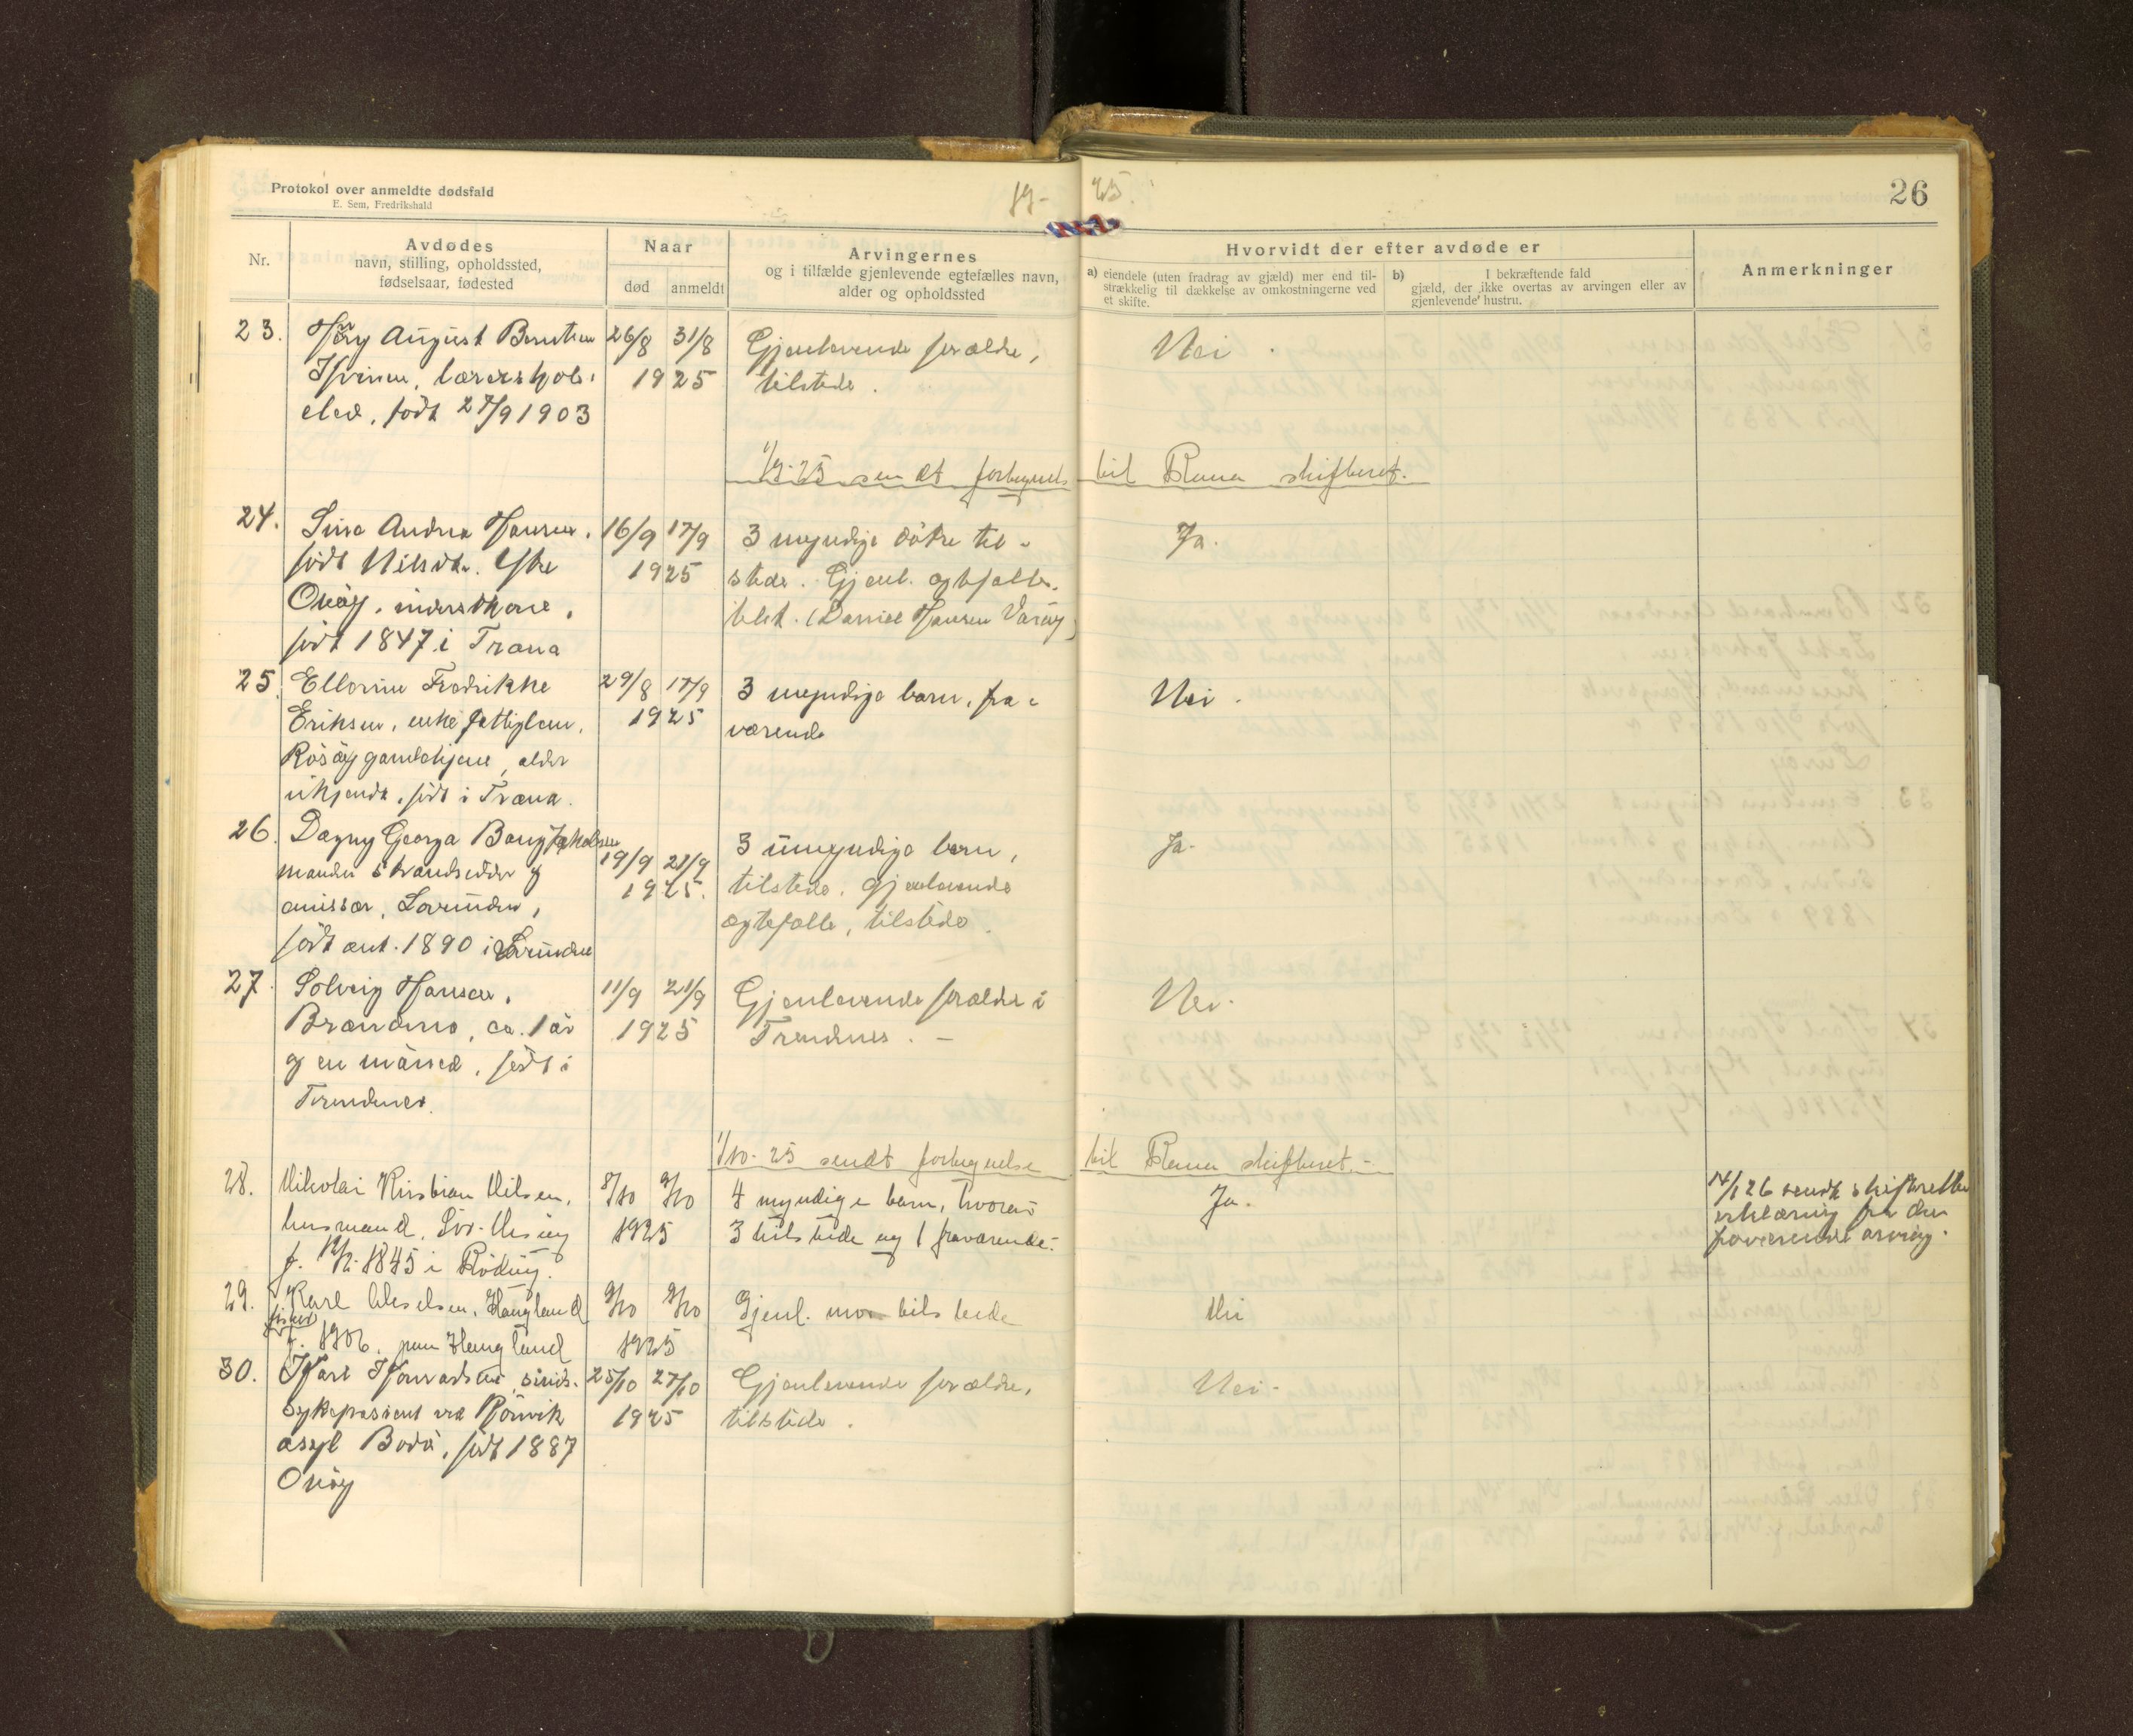 Protokol over anmeldte dødsfald
E. Sem, Fredrikshald
19-25.
26
Nr.
Avdødes
navn, stilling, opholdssted,
fødselsaar, fødested
Naar
død
anmeldt
Arvingernes
og i tilfælde gjenlevende egtefælles navn,
alder og opholdssted
Hvorvidt der efter avdøde er
a) eiendele (uten fradrag av gjæld) mer end til-
strækkelig til dækkelse av omkostningerne ved
et skifte.
b) I bekræftende fald
gjæld, der ikke overtas av arvingen eller av
gjenlevende hustru.
Anmerkninger
23. August Berntsen 26/8 31/8 Gjenlevende forældre, Nei
1925 tilstede.
elev, født 27/9 1903
1/9-25 sendt fortegnels til Rana skifteret.
24. Sina Andrea Hansen, 16/9 17/9 3 myndige døtre til- Ja.
født Nilsdtr. Ytre 1925 stede. Gjenl. egtefælle
Onøy,
tilst. (Daniel Hansen Varøy)
født 1847 i Træna
25. Ellorine Fredrikke 29/8 17/9 3 myndige barn, fra- Nei.
Eriksen, enke fattiglem, 1925 værende
Rösöy gamlehjem, alder
ukjendt, født i Træna.
26. Dagny Georga Bang Jakobsen 19/9 21/9 3 umyndige barn, Ja.
1925. tilstede, gjenlevende
Lovunden, egtefælle, tilstede.
født ant. 1890 i Lovunden
27. Solveig Hansen, 11/9 21/9 Gjenlevende forældre i Nei.
ca. 1 år 1925 Trendnes. -
og en måned, født i
Trendnes.
1/10-25 sendt fortegnelse til Rana skifteret. -
28. Nikolai Kristian Nilsen, 8/10 9/10 4 myndige barn, hvorav Ja.
husmand, 1925 3 tilstede og 1 fraværende.
f. 1845 i Rödöy.
14/1 26 sendt skifteretten
erklæring fra den
fraværende arving.
29. Karl Haugland 9/10 9/10 Gjenl. mor tilstede Nei
fisker
f. 1906 paa Haugland 1925
30. sinds- 25/10 27/10 Gjenlevende forældre, Nei-
sykepasient ved Rönvik 1925 tilstede.
asyl Bodö, født 1887
Onöy